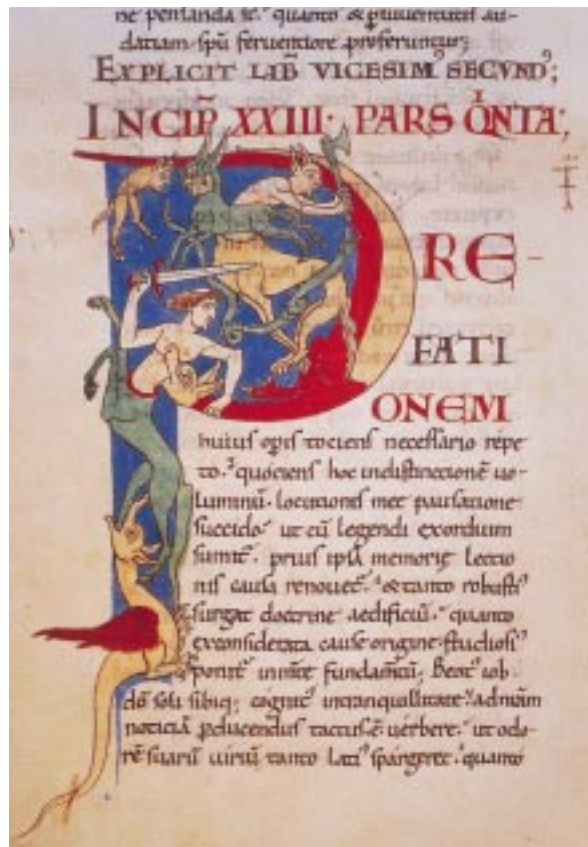 ne penſanda ſc̄. quanto & p̱ iuuentutiſ au-
datiam. ſpū feruentiore proferuntur;
EXPLICIT LIB̄ VICESIMꝰ SECVNDꝰ;
INCIP̄ XXIII· PARS QͥNTA;
P RE-
FATI
ONEM
huiuſ opiſ tocienſ neceſſario repe
to. quocienſ hoc indiſtinctionē uo-
luminū. locutioniſ meę pauſatione
ſuccido. ut cū legendi exordium
ſumit̄. priuſ ipſa memorię lectio
niſ cauſa renouet̄. & tanto robuſtiꝰ
ſurgat doctrine aedificiū. quanto
exconſiderata cauſę origine ſtudioſiꝰ
ponit̄ inm̄te fundam̄tū; Beatꝰ iob
dō ſoli ſibiq; cognitꝰ intranquillitate. adnr̄am
noticiā ꝑducenduſ tactuſ.ē. uerbere. ut odo-
rē ſuarū uiriū tanto latiꝰ ſpargeret. quanto